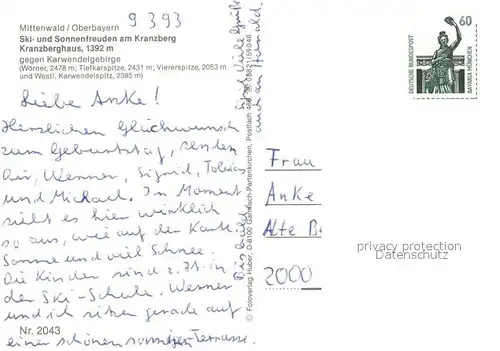 9393
Mittenwald / Oberbayern
Ski- und Sonnenfreuden am Kranzberg
Kranzberghaus, 1392 m
gegen Karwendelgebirge
(Wörner, 2478 m; Tiefkarspitze, 2431 m; Viererspitze, 2053 m
und Westl. Karwendelspitz, 2385 m)
Liebe Anke!
Herzlichen Glückwunsch
zum Geburtstag, senden
Dir, Werner, Sigrid, Tobias
und Michael. Im Moment
sieht es hier wirklich
so aus, wie auf der Karte.
Sonne und viel Schnee.
Die Kinder sind z.Zt. in
der Ski-Schule. Werner
und ich sitzen gerade auf
einer schönen sonnigen Terrasse.
Nr. 2043
Bis bald und viele Grüße
auch an
© Fotoverlag Huber, D-8100 Garmisch-Partenkirchen, Postfach 466, ☎ 08821/59048
60
DEUTSCHE BUNDESPOST
BAVARIA MÜNCHEN
Frau
Anke
Alte B
privacy protection
DELCAMPE
2000